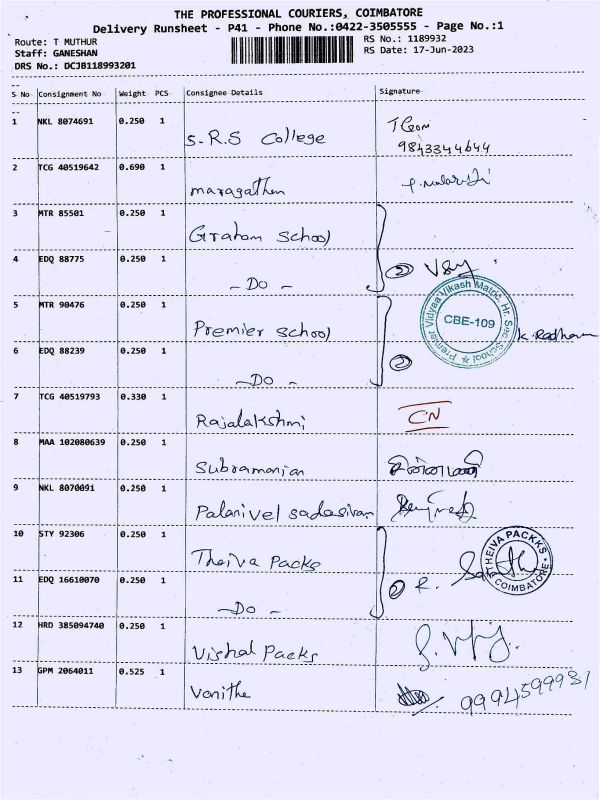 THE PROFESSIONAL COURIERS, COIMBATORE
Delivery Runsheet - P41 - Phone No.:0422-3505555 - Page No.:1
Route: T MUTHUR
RS No.: 1189932
Staff: GANESHAN
RS Date: 17-Jun-2023
DRS No.: DCJB118993201
S No Consignment No Weight PCS Consignee Details Signature
1 NKL 8074691 0.250 1
S.R.S College
9843344644
2 TCG 40519642 0.690 1
maragatham
3 MTR 85501 0.250 1
Graham School
4 EDQ 88775 0.250 1
- Do - 2
5 MTR 90476 0.250 1
Premier School
Premier Vidyaa Vikash Matric. Hr. Sec. School
CBE-109
K. Radha
6 EDQ 88239 0.250 1
2
- Do -
7 TCG 40519793 0.330 1
Rajalakshmi CN
8 MAA 102080639 0.250 1
Subramanian
9 NKL 8070091 0.250 1
Palanivel Sadasivam
10 STY 92306 0.250 1
Theiva Packs
THEIVA PACKKS
COIMBATORE
11 EDQ 16610070 0.250 1
2 R.
- Do -
12 HRD 385094740 0.250 1
Vishal Packs
13 GPM 2064011 0.525 1
Vanitha 9994599931